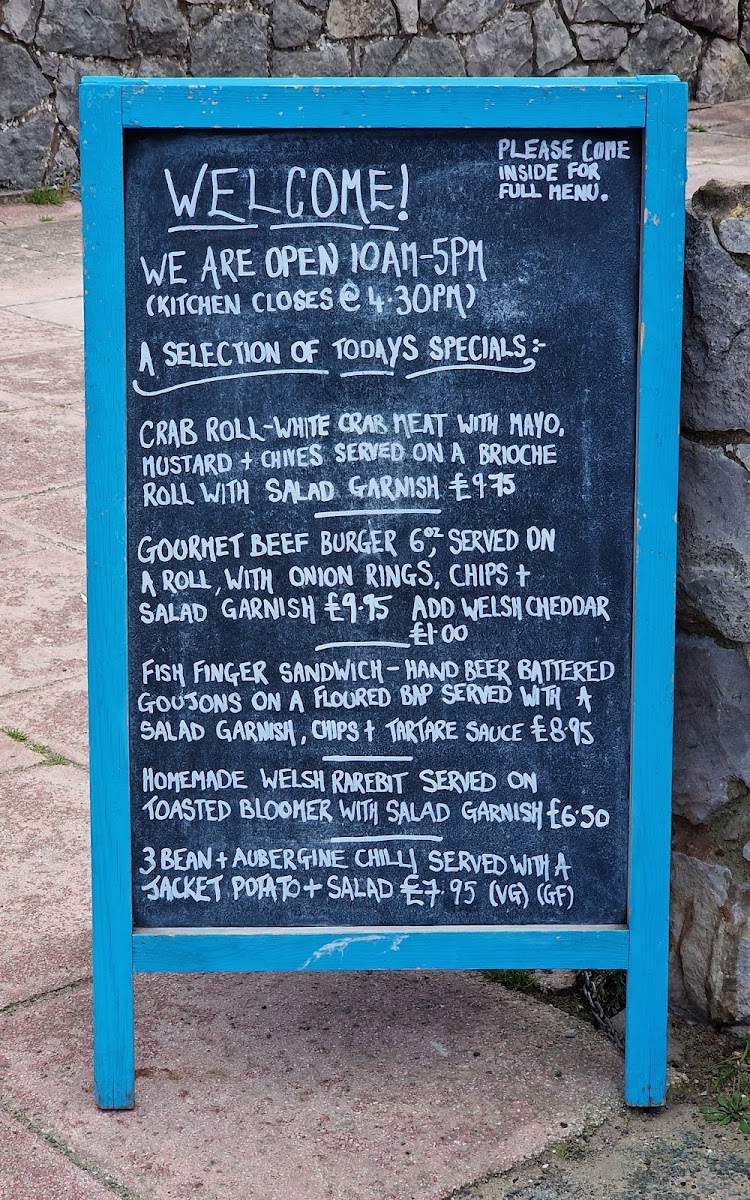 WELCOME!
PLEASE COME
INSIDE FOR
FULL MENU.
WE ARE OPEN 10AM-5PM
(KITCHEN CLOSES @ 4.30PM)
A SELECTION OF TODAYS SPECIALS:-
CRAB ROLL-WHITE CRAB MEAT WITH MAYO,
MUSTARD + CHIVES SERVED ON A BRIOCHE
ROLL WITH SALAD GARNISH £9.75
GOURMET BEEF BURGER 6oz, SERVED ON
A ROLL, WITH ONION RINGS, CHIPS +
SALAD GARNISH £9.95 ADD WELSH CHEDDAR
£1.00
FISH FINGER SANDWICH - HAND BEER BATTERED
GOUJONS ON A FLOURED BAP SERVED WITH A
SALAD GARNISH, CHIPS + TARTARE SAUCE £8.95
HOMEMADE WELSH RAREBIT SERVED ON
TOASTED BLOOMER WITH SALAD GARNISH £6.50
3 BEAN + AUBERGINE CHILLI SERVED WITH A
JACKET POTATO + SALAD £7.95 (VG) (GF)